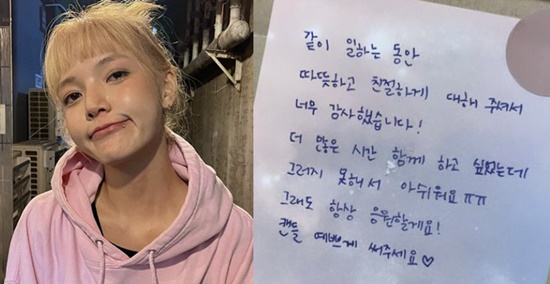 같이 일하는 동안
따뜻하고 친절하게 대해 줘서
너무 감사했습니다!
더 많은 시간 함께 하고 싶었는데
그러지 못해서 아쉬워요ㅠㅠ
그래도 항상 응원할게요!
캔들 예쁘게 써주세요♡